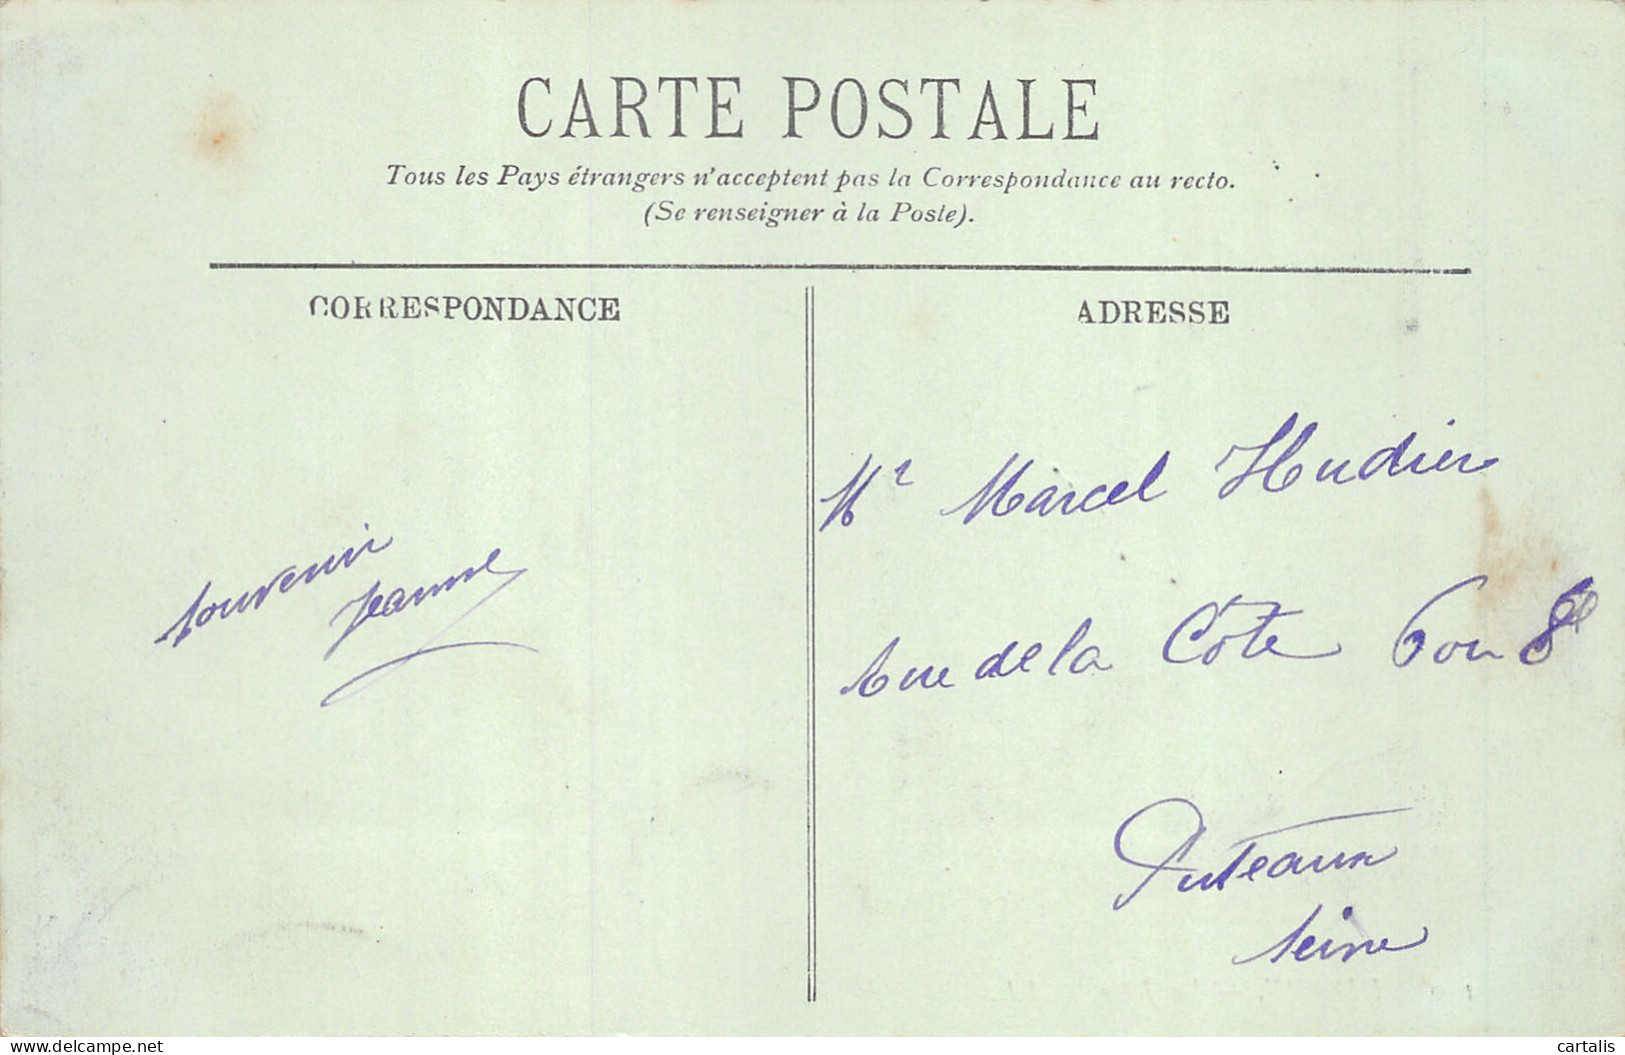 CARTE POSTALE
Tous les Pays étrangers n'acceptent pas la Correspondance au recto.
(Se renseigner à la Poste).
CORRESPONDANCE
souvenir
Jeanne
ADRESSE
Mr Marcel Hudier
rue de la Côte 6 ou 8
Puteaux
Seine
www.delcampe.net
cartalis